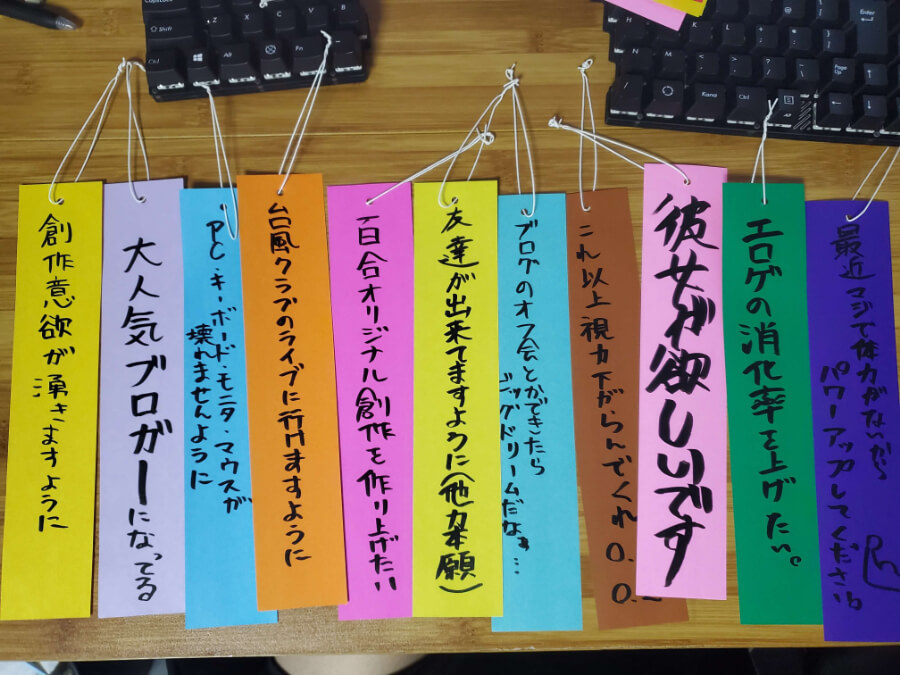 創作意欲が湧きますように
大人気ブロガーになってる
PC・キーボード・モニタ・マウスが
壊れませんように
台風クラブのライブに行けますように
百合オリジナル創作を作り上げたい
友達が出来てますように(他力本願)
ブログのオフ会とかできたら
ビッグドリームだなぁ…
これ以上視力下がらんでくれ
彼女が欲しいです
エロゲの消化率を上げたい。
最近マジで体力がないから
パワーアップしてください
Shift
Ctrl
Alt
Fn
Kana
Ctrl
Page Up